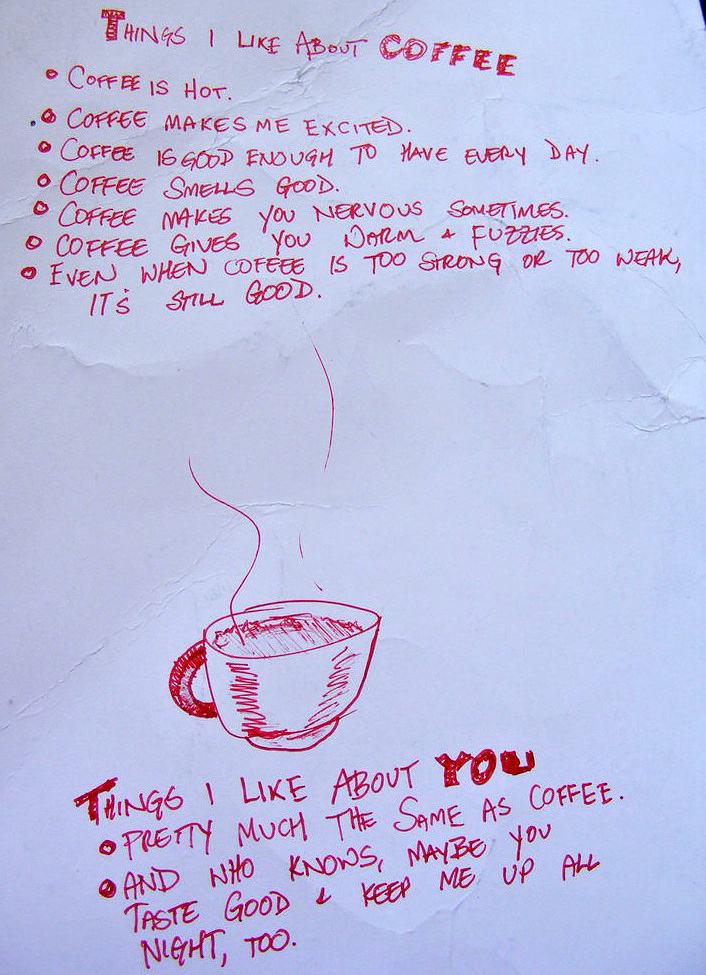 THINGS I LIKE ABOUT COFFEE
• COFFEE IS HOT.
• COFFEE MAKES ME EXCITED.
• COFFEE IS GOOD ENOUGH TO HAVE EVERY DAY.
• COFFEE SMELLS GOOD.
• COFFEE MAKES YOU NERVOUS SOMETIMES.
• COFFEE GIVES YOU WARM & FUZZIES.
• EVEN WHEN COFFEE IS TOO STRONG OR TOO WEAK,
IT'S STILL GOOD.
THINGS I LIKE ABOUT YOU
• PRETTY MUCH THE SAME AS COFFEE.
• AND WHO KNOWS, MAYBE YOU
TASTE GOOD & KEEP ME UP ALL
NIGHT, TOO.